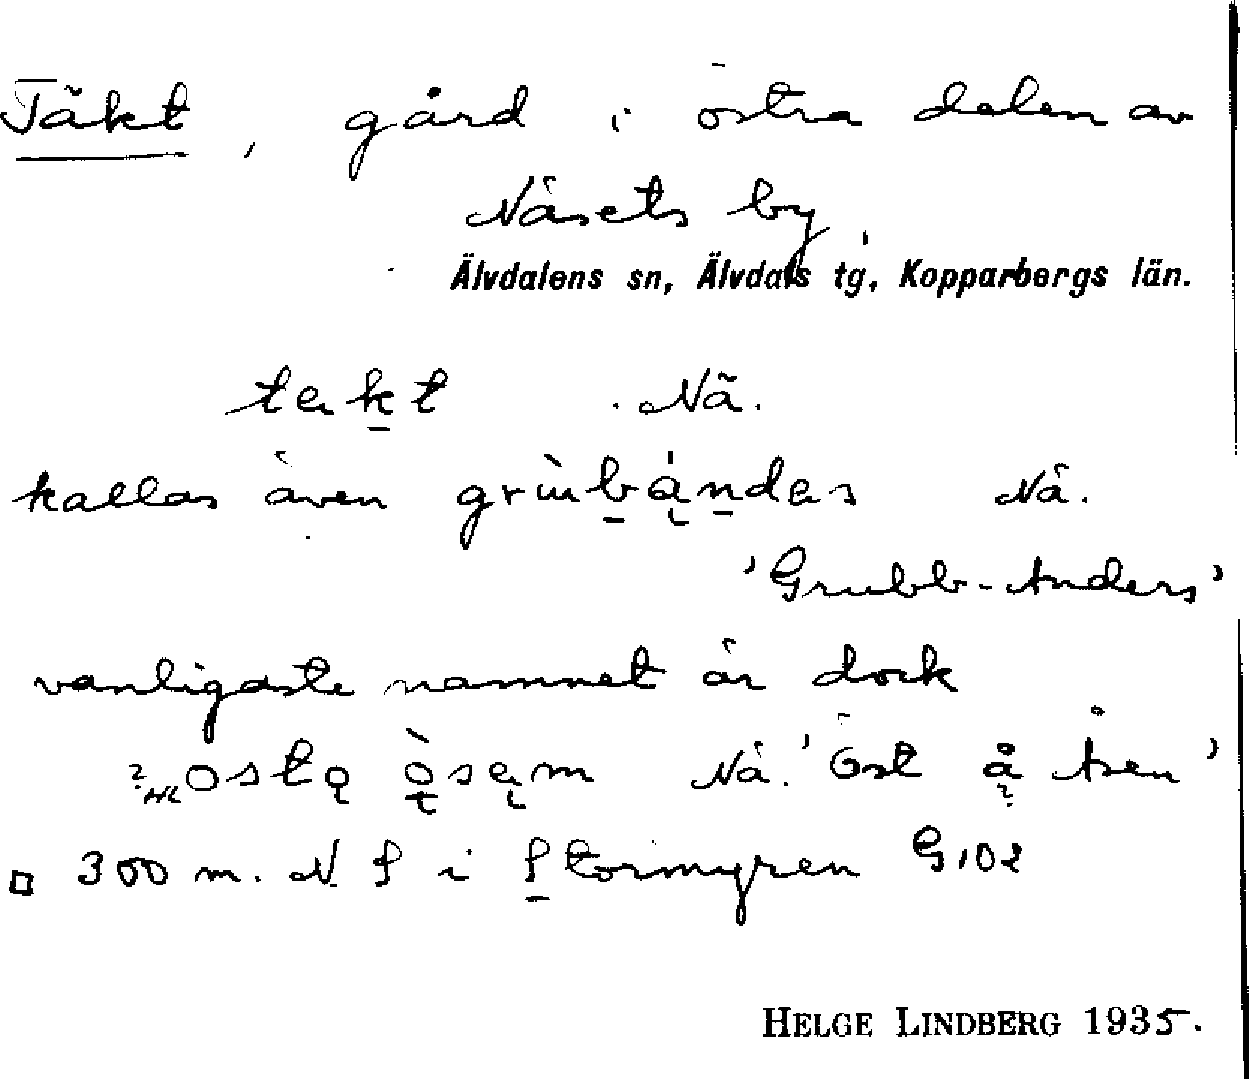 Täkt, gård i östra delen av
Näsets by,
Älvdalens sn, Älvdals tg, Kopparbergs län.
tekt Nä.
kallas även grùbándes Nä.
'Grubb-Anders'
vanligaste namnet är dock
Nä. 'Öst å Åsen'
□ 300 m. N S i Stormyren G102
HELGE LINDBERG 1935.